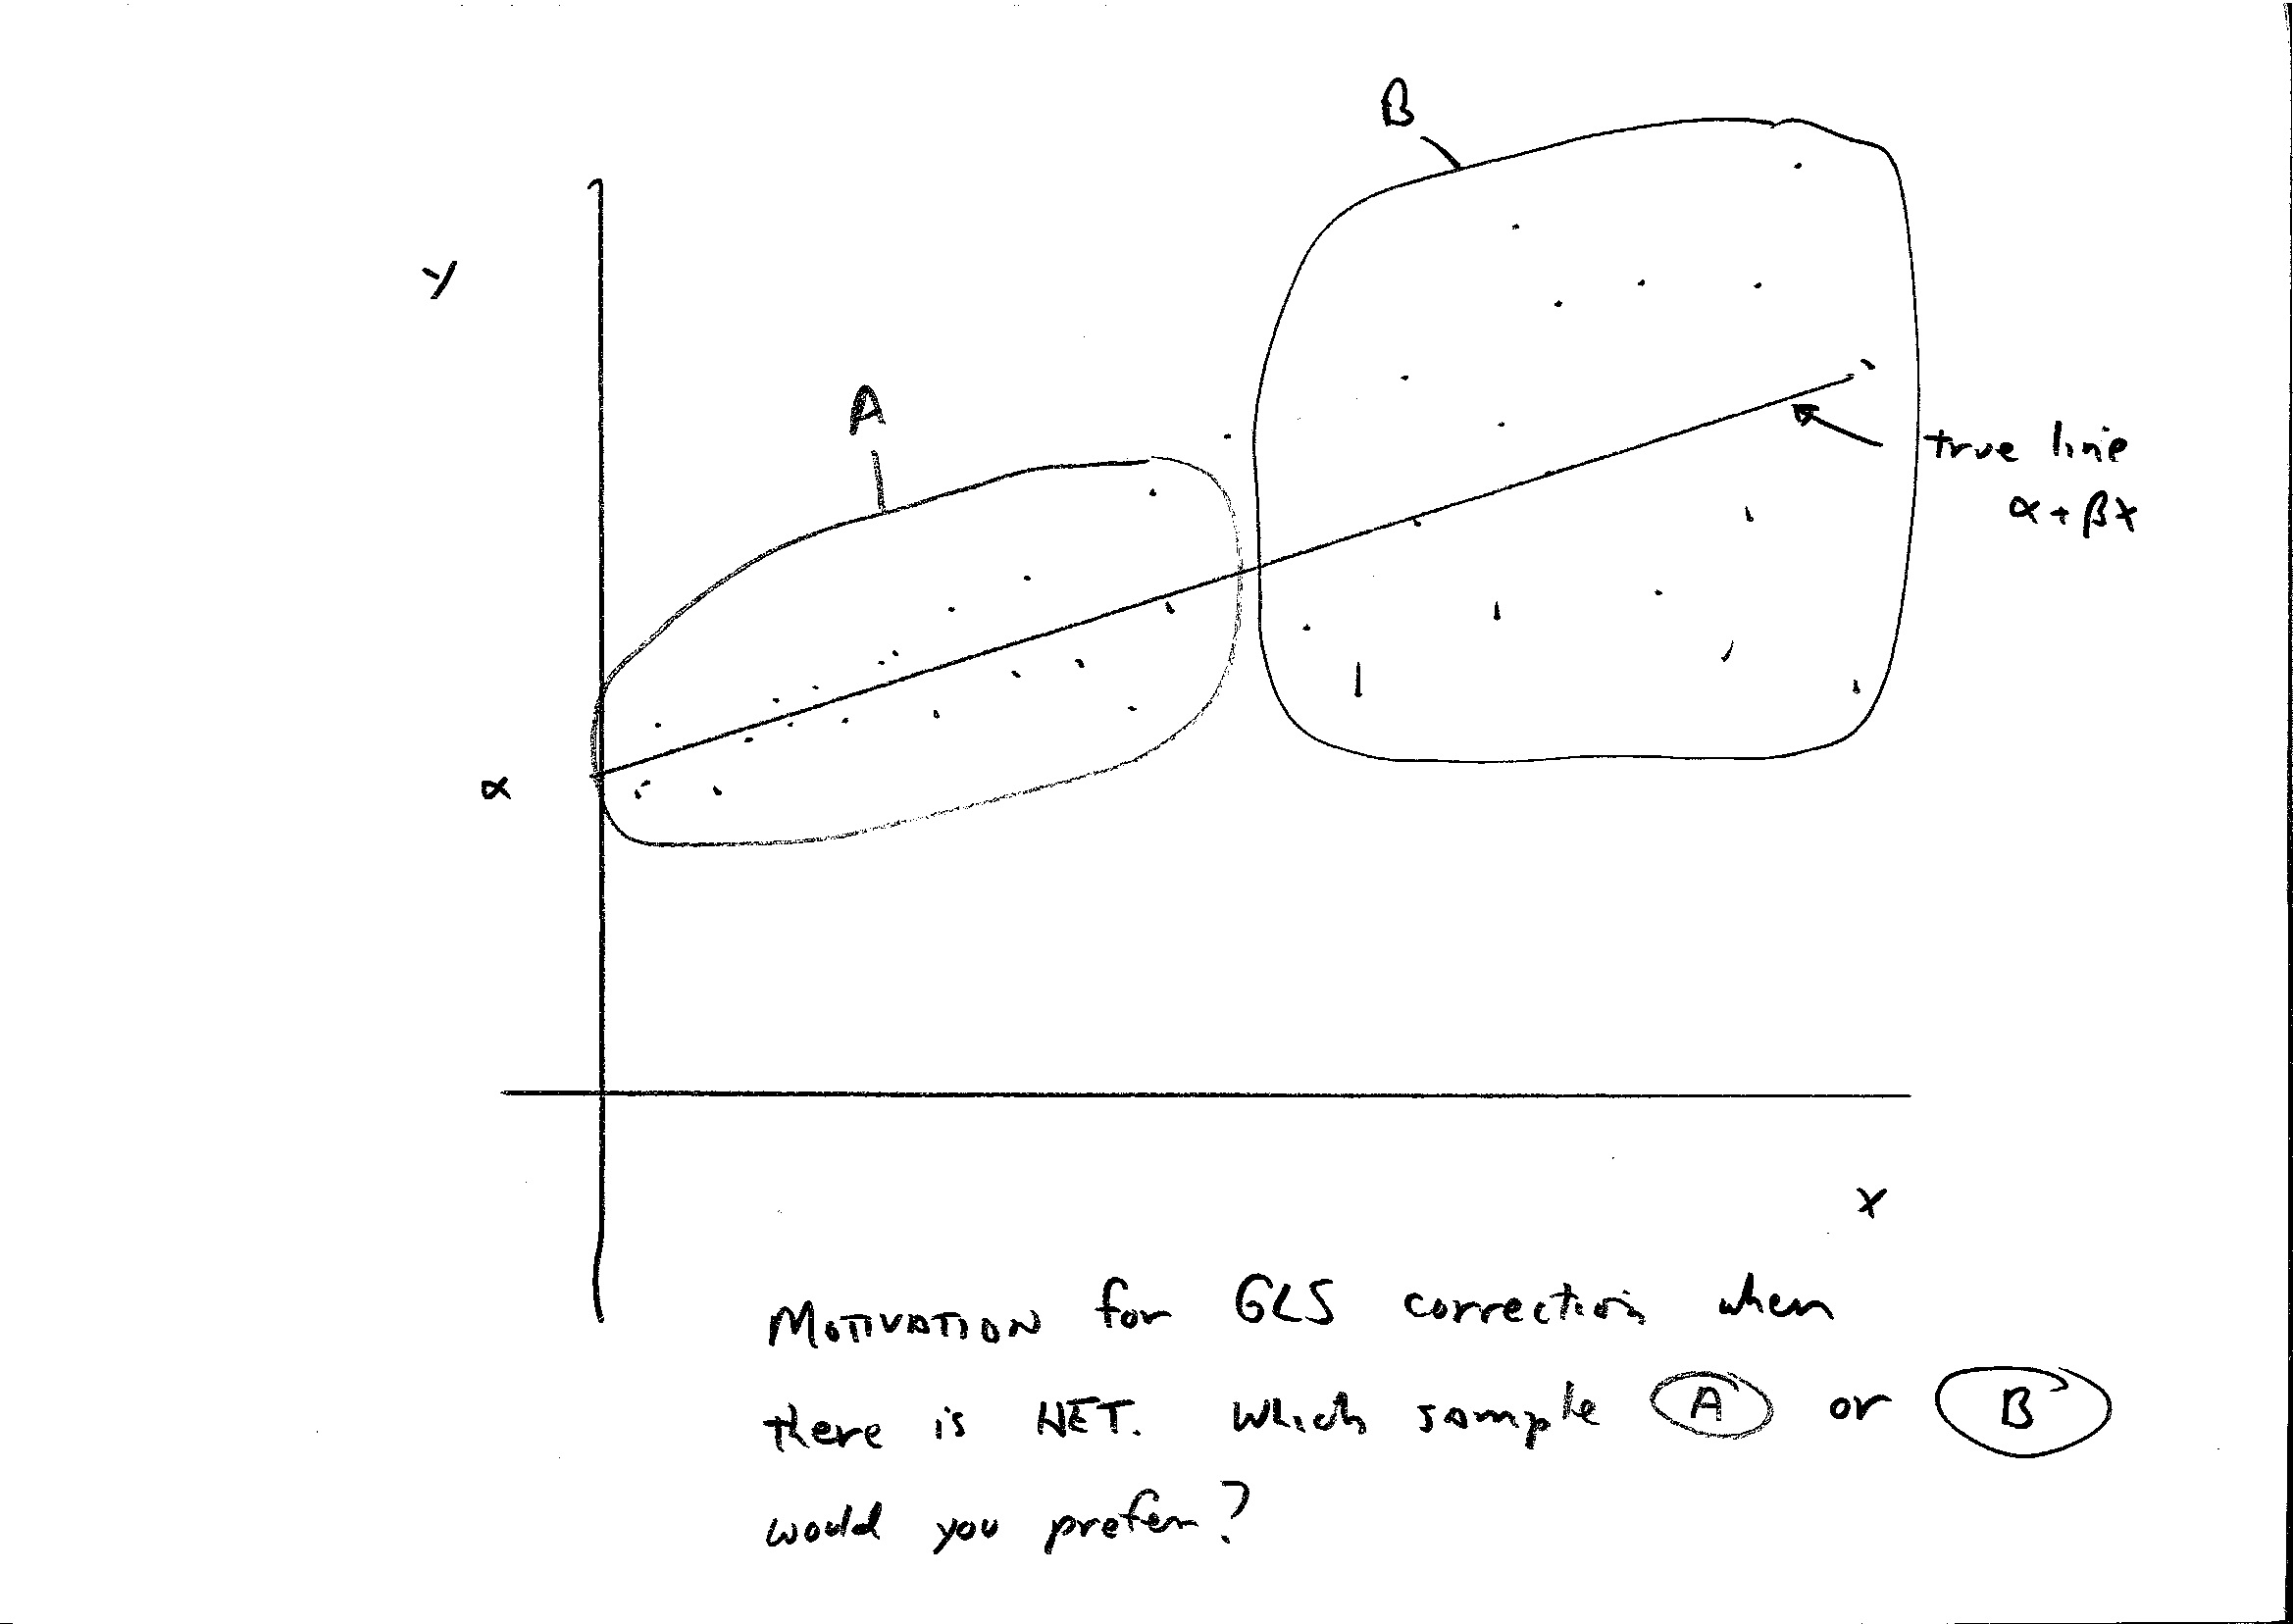 B
y
A
true line
α + βx
α
x
MOTIVATION for GLS correction when
there is HET. Which sample A or B
would you prefer?